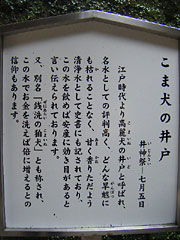 こま犬の井戸
井神祭－七月五日
いじんさい
江戸時代より高麗犬の井戸と呼ばれ、
こまいぬ いど
名水としての評判高く、どんな旱魃に
かんばつ
も枯れることなく、甘く香りただよう
清浄水として史書にも記されており、
この水を飲めば安産に効き目があると
言い伝えられております。
又、別名「銭洗の狛犬」とも称され、
この水でお金を洗えば倍に増えるとの
信仰もあります。